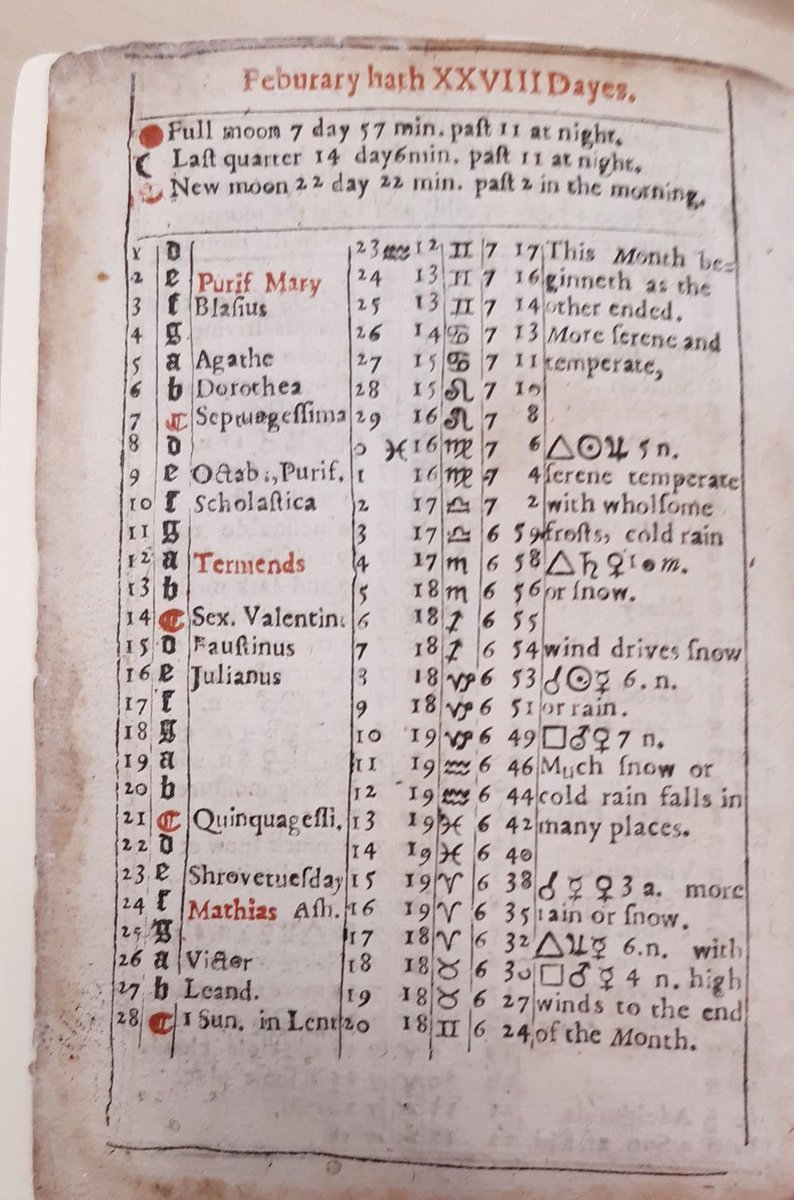 Feburary hath XXVIII Dayes.
Full moon 7 day 57 min. paſt 11 at night.
Laſt quarter 14 day 6 min. paſt 11 at night.
New moon 22 day 22 min. paſt 2 in the morning.
1 d 23 ♒ 12 ♊ 7 17 This Month be=
2 e Purif Mary 24 13 ♊ 7 16 ginneth as the
3 f Blaſius 25 13 ♊ 7 14 other ended.
4 g 26 14 ♋ 7 13 More ſerene and
5 a Agathe 27 15 ♋ 7 11 temperate,
6 b Dorothea 28 15 ♌ 7 10
7 C Septuageſſima 29 16 ♌ 7 8
8 d 0 ♓ 16 ♍ 7 6 △☉♃ 5 n.
9 e Octab., Purif. 1 16 ♍ 7 4 ſerene temperate
10 f Scholaſtica 2 17 ♎ 7 2 with wholſome
11 g 3 17 ♎ 6 59 froſts, cold rain
12 a Termends 4 17 ♏ 6 58 △♄♀ 10 m.
13 b 5 18 ♏ 6 56 or ſnow.
14 C Sex. Valentin. 6 18 ♐ 6 55
15 d Fauſtinus 7 18 ♐ 6 54 wind drives ſnow
16 e Julianus 8 18 ♑ 6 53 ☌☉☿ 6. n.
17 f 9 18 ♑ 6 51 or rain.
18 g 10 19 ♑ 6 49 □♂♀ 7 n.
19 a 11 19 ♒ 6 46 Much ſnow or
20 b 12 19 ♒ 6 44 cold rain falls in
21 C Quinquageſſi. 13 19 ♓ 6 42 many places.
22 d 14 19 ♓ 6 40
23 e Shrovetueſday 15 19 ♈ 6 38 ☌☿♀ 3 a. more
24 f Mathias Aſh. 16 19 ♈ 6 35 rain or ſnow.
25 g 17 18 ♈ 6 32 △♃☿ 6.n. with
26 a Victor 18 18 ♉ 6 30 □♂☿ 4 n. high
27 b Leand. 19 18 ♉ 6 27 winds to the end
28 C 1 Sun. in Lent 20 18 ♊ 6 24 of the Month.